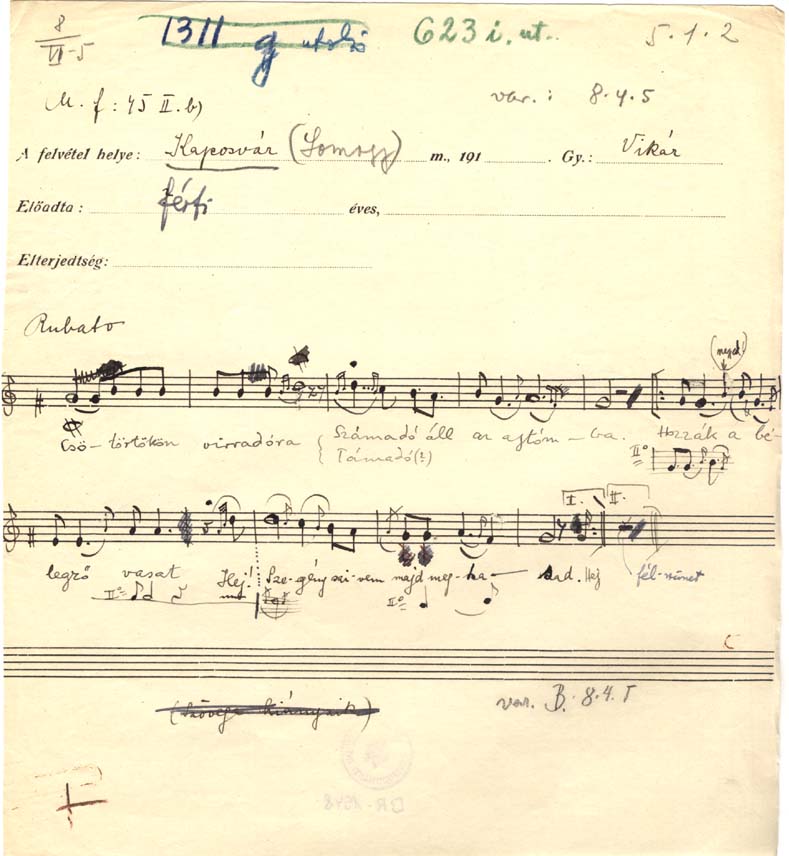 8
VI-5
1311 g utolsó 623 i. ut.. 5.1.2
M. f: 45 II. b) var.: 8.4.5
A felvétel helye: Kaposvár (Somogy) m., 191 . Gy.: Vikár
Előadta: férfi éves,
Elterjedtség:
Rubato
Csö-törtökön virradóra Számadó áll az ajtóm-ba. Hozzák a bé-
Támadó(?)
IIº
legző vasat Hej! Sze-gény szi-vem majd meg-ha- sad. Hej fél-szünet
I. II.
IIº IIº
(szövege hiányzik)
var. B. 8.4.5